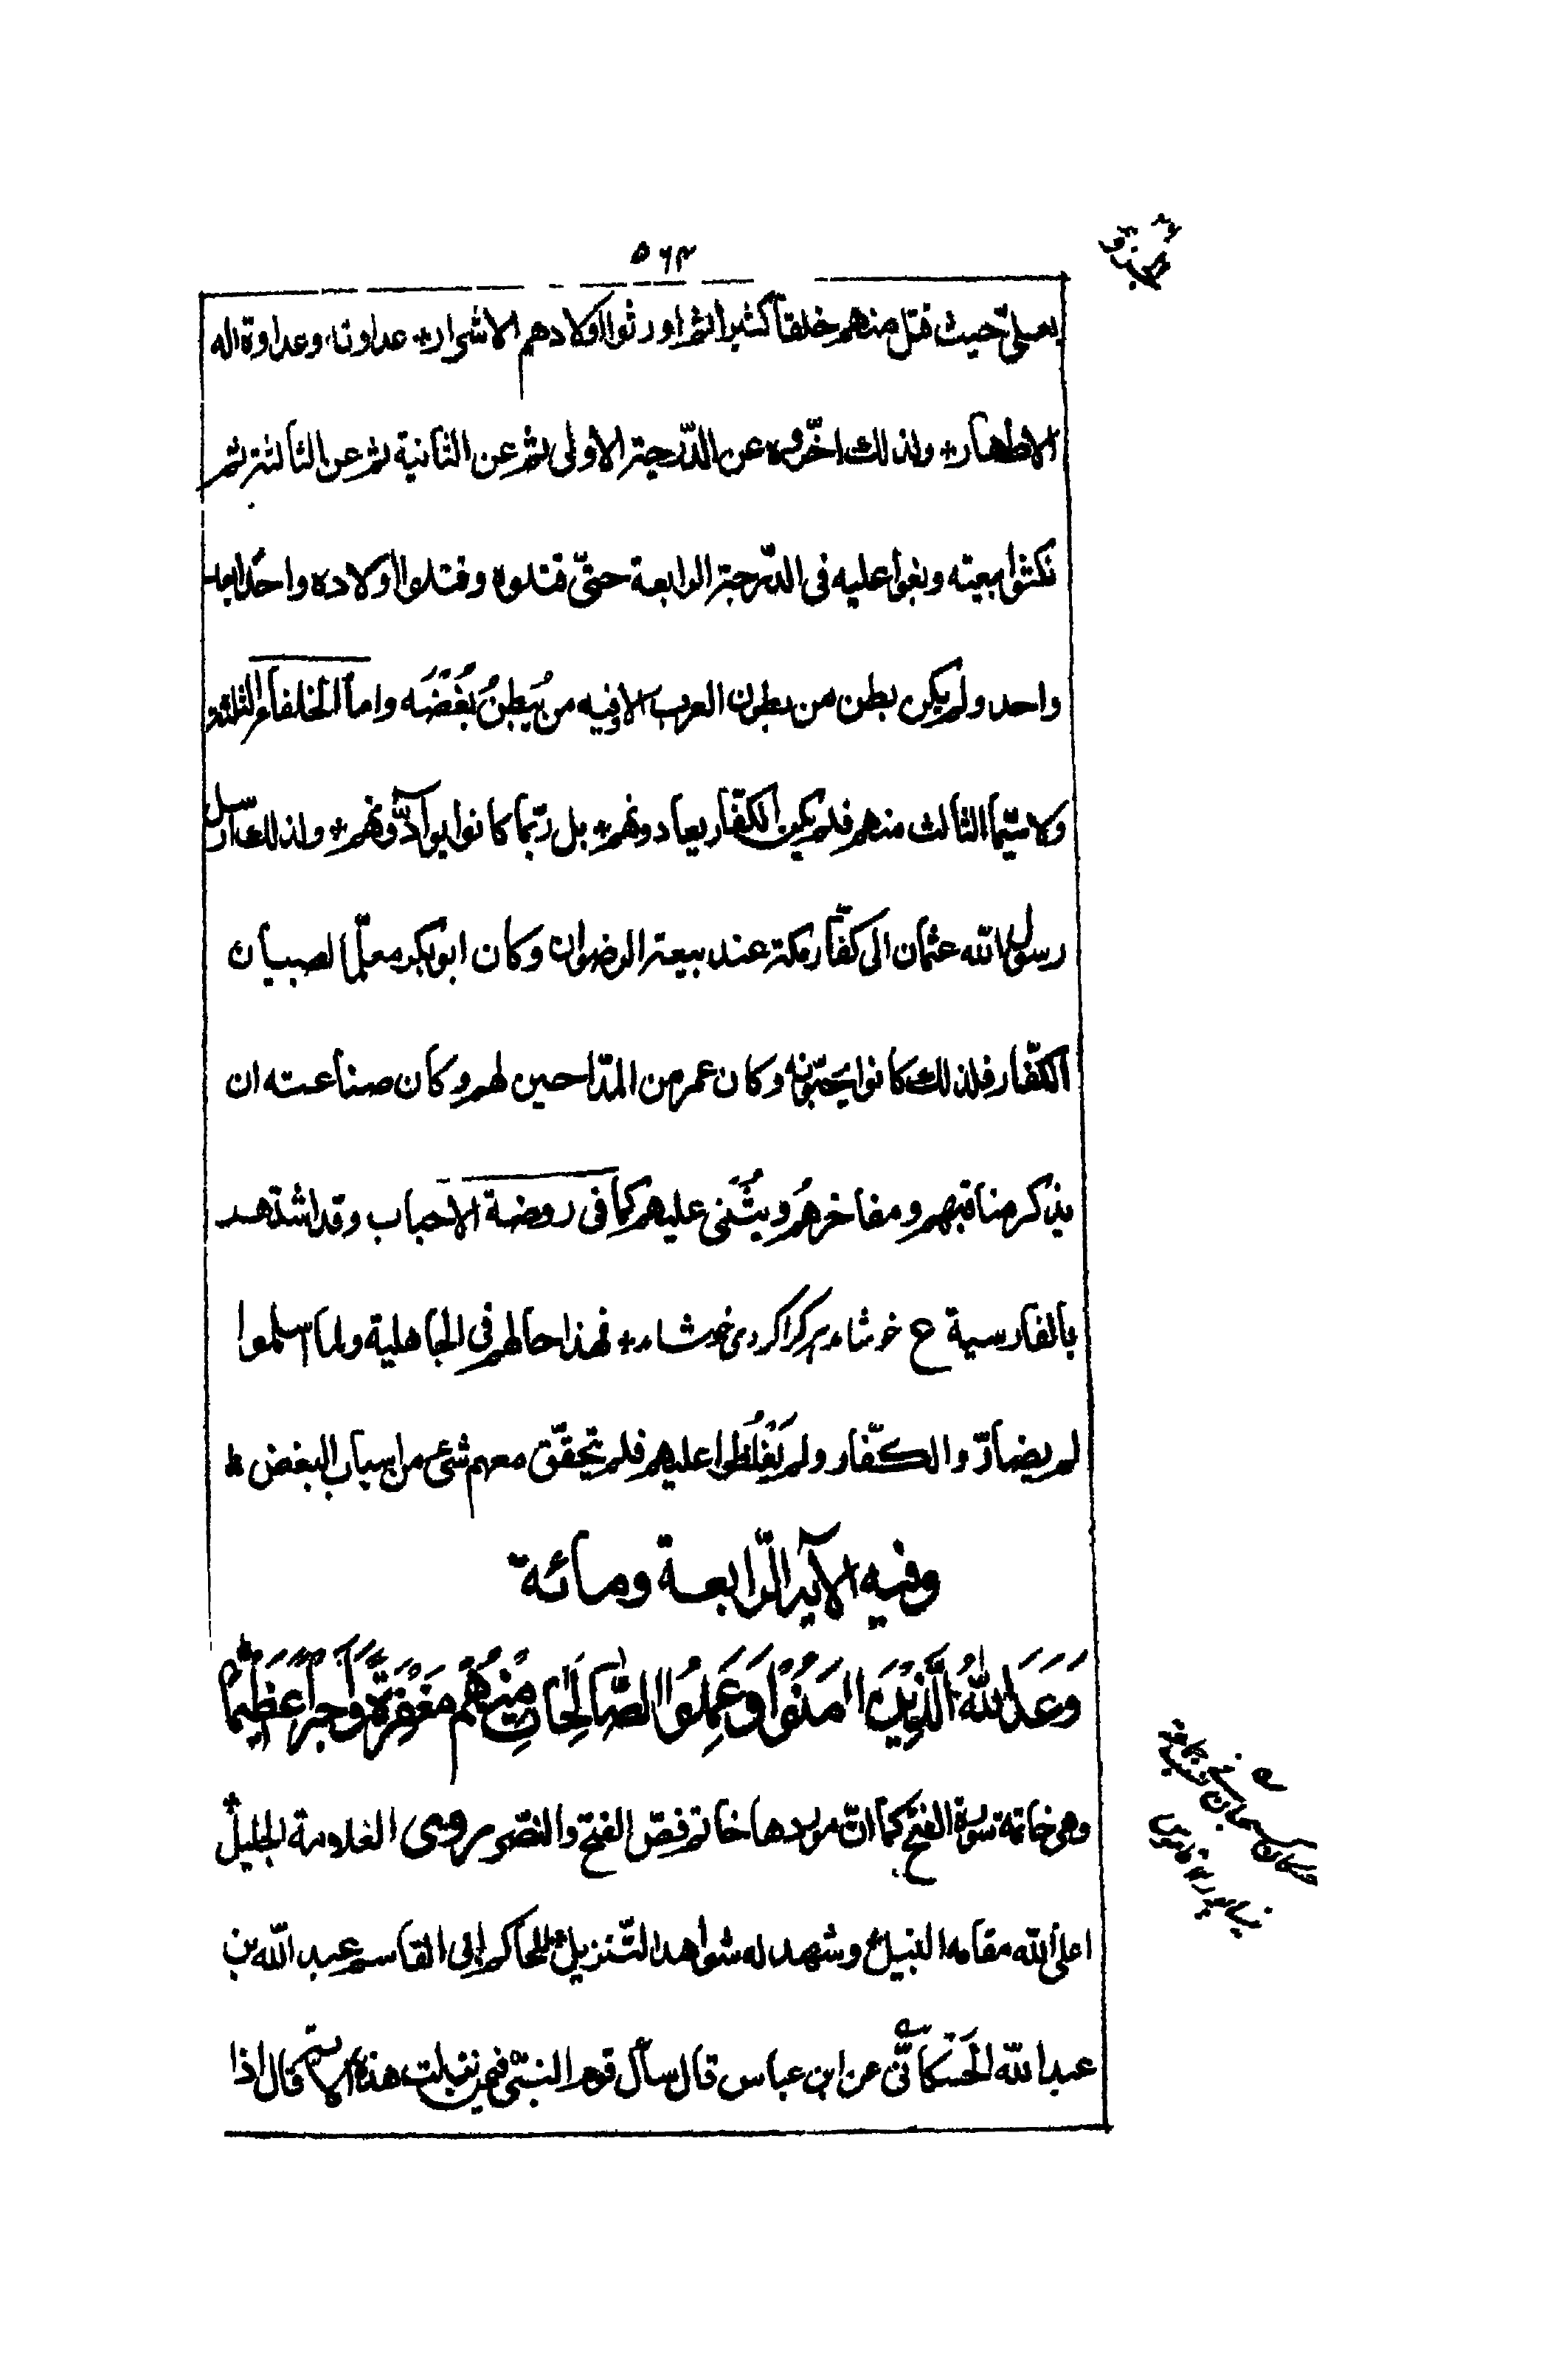 ۵۶۴
بعلیّ حیث قتل منهم خلقاً کثیرا ثم اورثوا اولادهم الاشرار٭ عداوته وعداوة اله
الاطهار٭ ولذلك اخّروه عن الدّرجة الاولی ثم عن الثانیة ثم عن الثالثة ثم
نکثوا بیعته وبغوا علیه فی الدّرجة الرابعة حتیّ قتلوه وقتلوا اولاده واحدا بعد
واحد ولم یکن بطن من بطون العرب الا وفیه من یُبطِنُ بُغضَه واما الخلفاء الثلاثة
ولا سیّما الثالث منهم فلم یکن الکفّار یعادونهم٭ بل ربّما کانوا یوادّونهم٭ ولذلك ارسل
رسول الله عثمان الی کفّار مکة عند بیعة الرضوان وکان ابوبکر معلّم الصبیان
الکفّار فلذلك کانوا یحبّونه وکان عمر من المدّاحین لهم وکان صناعته ان
یذکر مناقبهم ومفاخرهُم ویُثنی علیهم کما فی روضة الاحباب وقد اشتهر
بالفارسیة ع خوشامد هر کرا کردی خوشامد٭ فهذا حالهم فی الجاهلیة ولما اسلموا
لم یضارّوا الکفّار ولم یَغلُظوا علیهم فلم یتحقّق معهم شیء من اسباب البغض ط
وفیه الآیة الرّابعة ومائة
وَعَدَ اللهُ الَّذِیْنَ اٰمَنُوْا وَعَمِلُوا الصَّالِحَاتِ مِنْهُمْ مَغْفِرَةً وَّاَجْراً عَظِیْماً
وهی خاتمة سورة الفتح کما انّ موردها خاتم فصّ الفتح والنصّر روی العلامة الجلیل٭
اعلی الله مقامه النبیل٭ وشهد له شواهد التّنزیل٭ للحاکم ابی القاسم عبد الله بن
عبد الله الحَسْکانیّ عن ابن عباس قال سأل قوم النبیّ فیمن نزلت هذه الایة قال اذا